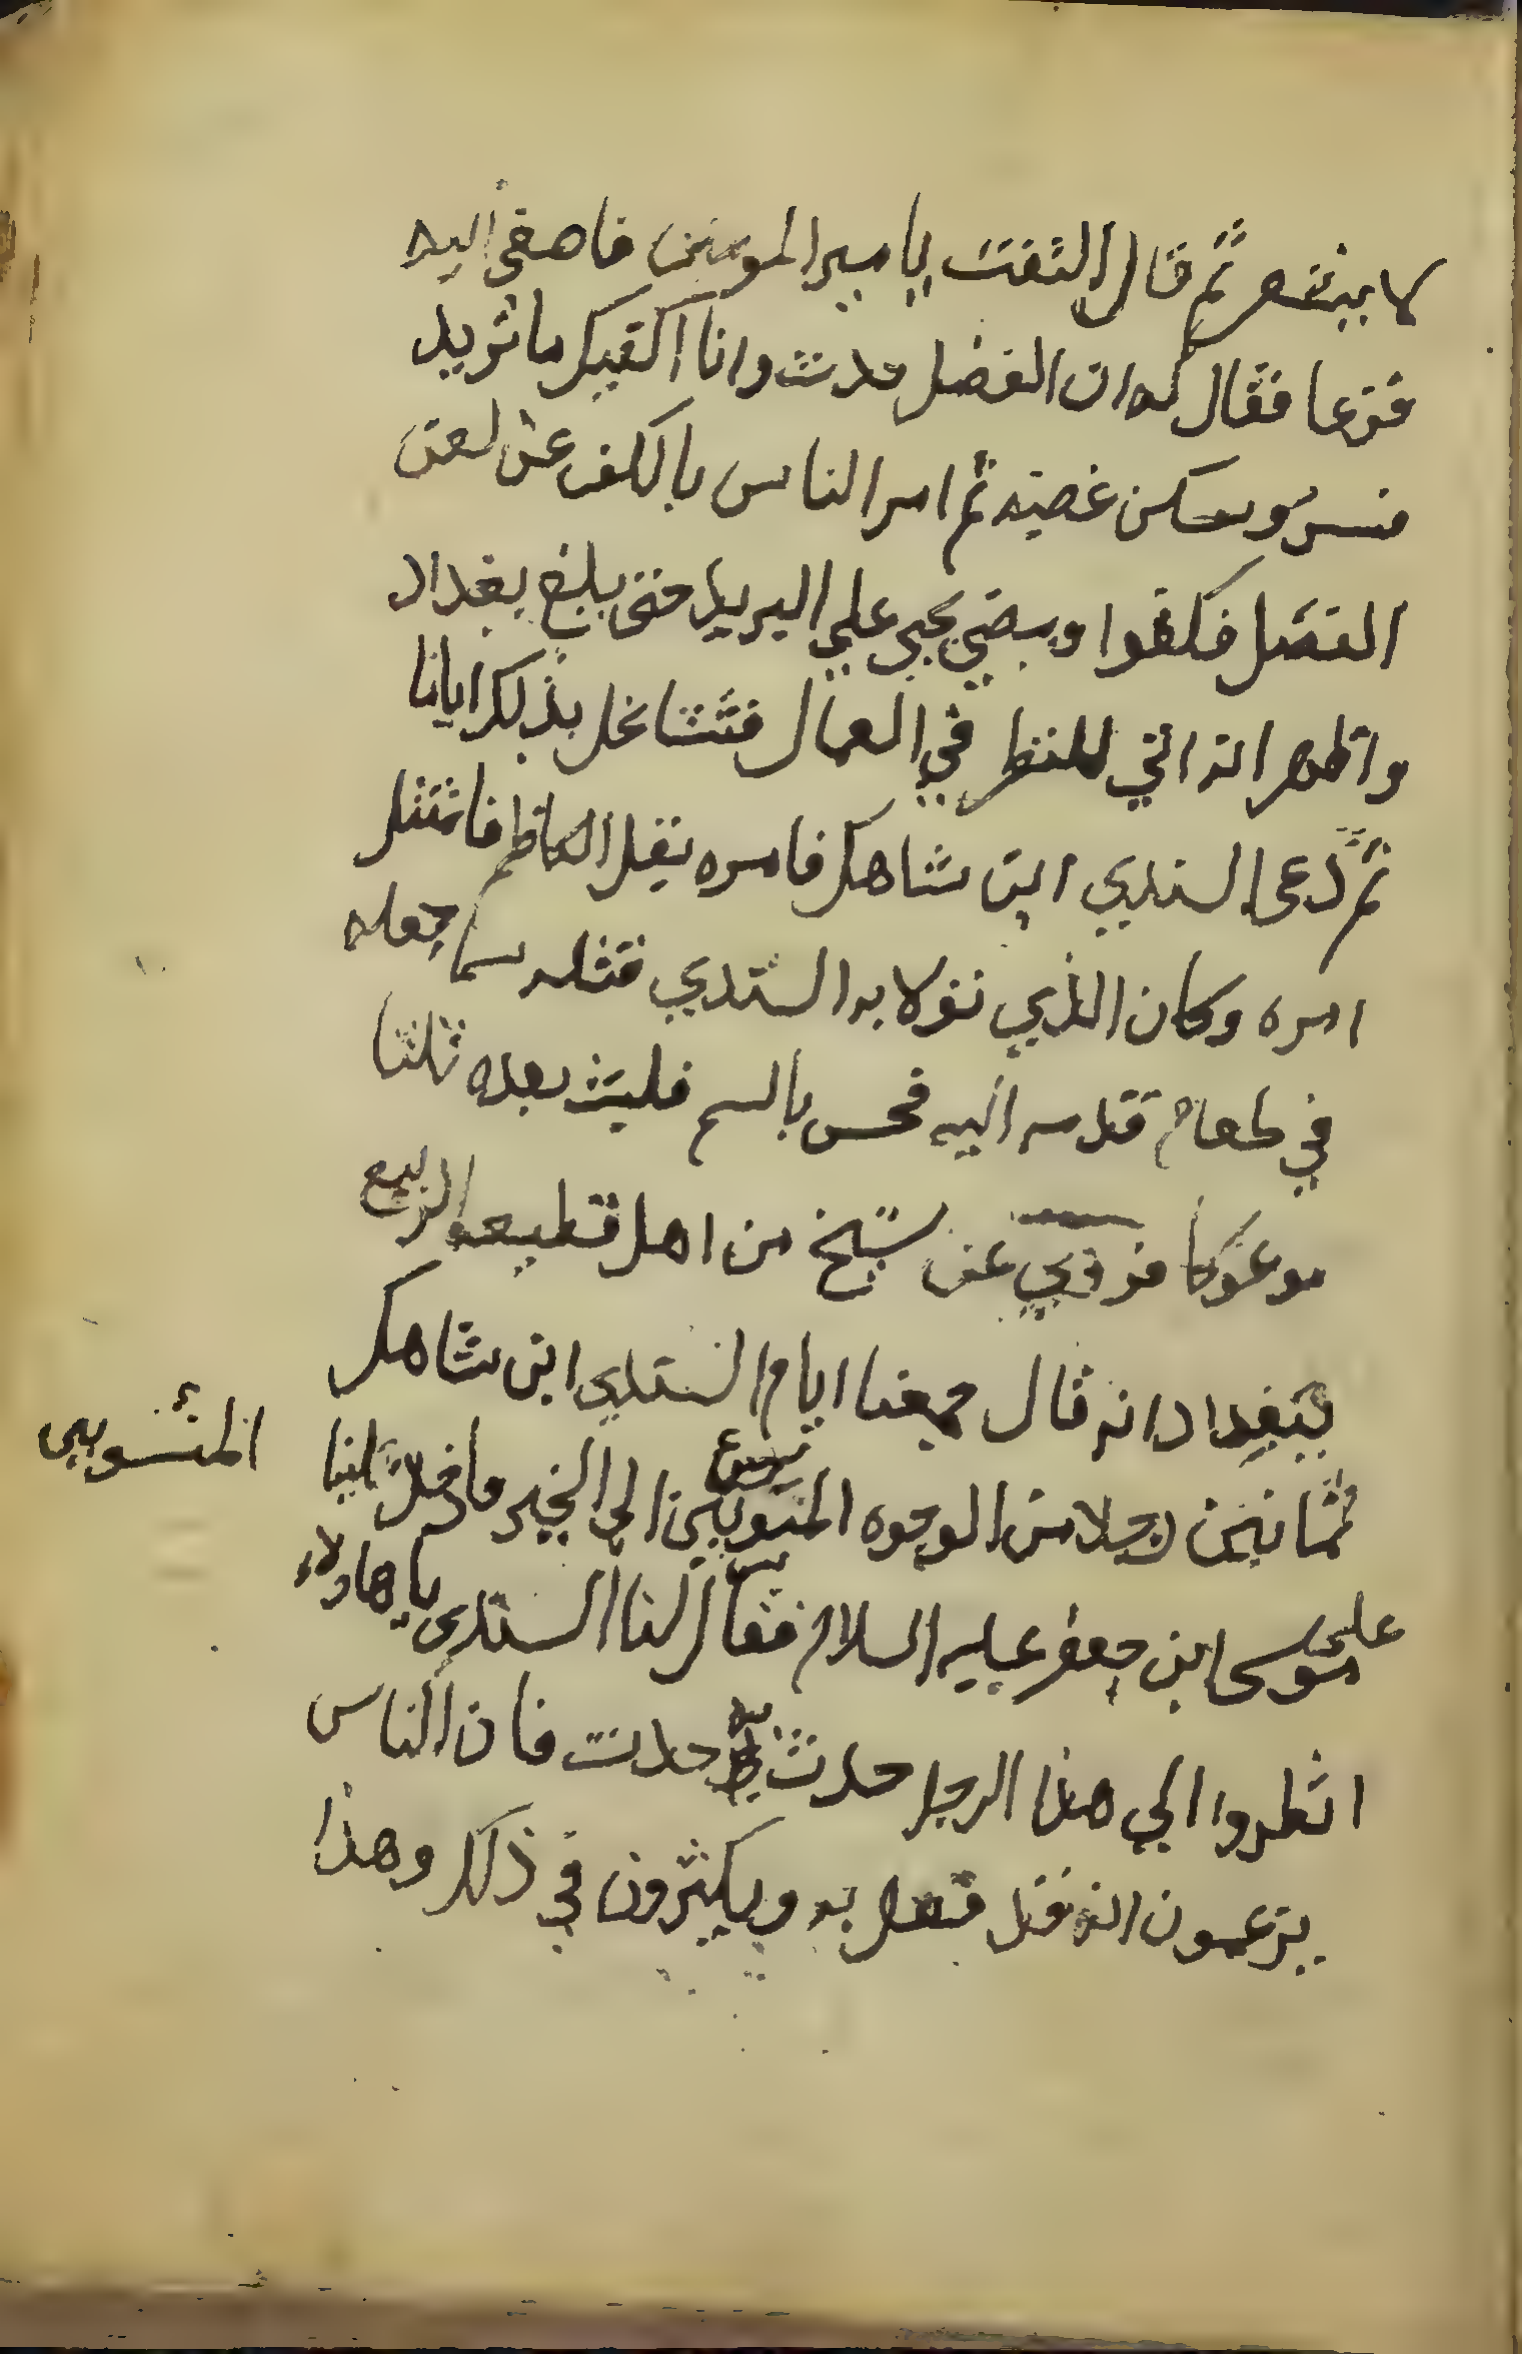 لا يبنصر ثم قال التفت يا مير المومنين فاصغى اليه
فزعا فقال له ان الفضل حدث وانا اكفيك ما تريد
فسر وسكن غضبه ثم امر الناس بالكف عن لعن
الفضل فكفوا ومضي يحيي علي البريد حتى بلغ بغداد
واظهر انه اتي للنظر في العمال فتشاغل بذلك اياما
ثم دعى السندي ابن شاهك فامره بقتل الكاظم فامتثل
امره وكان الذي تولا به السندي قتله سما جعله
في طعام قدمه اليه فحس بالسم فلبث بعده ثلثا
موعوكا فروي عن شيخ من اهل قطيعه الربيع
ببغداد انه قال جمعنا ايام السندي ابن شاهك
ثمانين رجلا من الوجوه المنسوبين الى الخير فادخلنا
علي موسى ابن جعفر عليه السلام فقال لنا السندى يا هاولاء
انظروا الي هذا الرجل هل حدث به حدث فان الناس
يزعمون انه فعل به ويكثرون في ذلك وهذا
المنسوبين